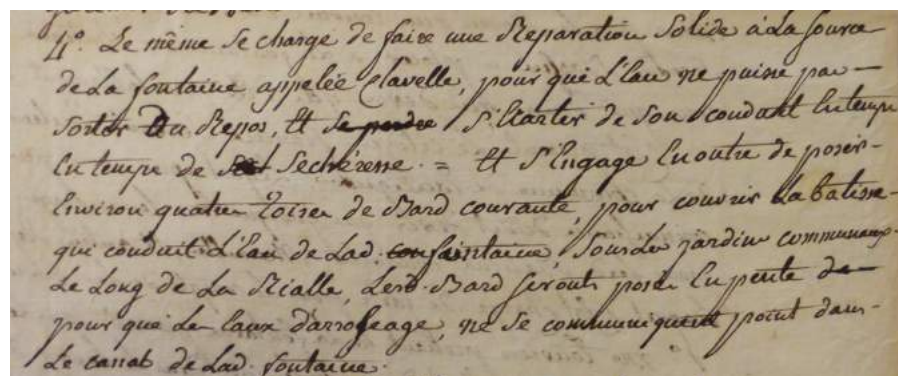 4.° Le même Se charge de faire une Reparation Solide à La source
de La fontaine appelée Clavelle, pour que L'Eau ne puisse pas
Sortir Du Repos, Et se perdre S'Ecarter de Son conduit En temps
En temps de Secheresse = Et S'Engage En outre de poser
Environ quatre Toises de Bard courante, pour couvrir La batisse
qui conduit L'Eau de Lad. fontaine, Sous Les jardins communaux
Le Long de La Rialle, Lesd. Bard seront posés En pente
pour que Les Eaux d'arroseage, ne Se communiquent point dans
Le canal de Lad. fontaine.